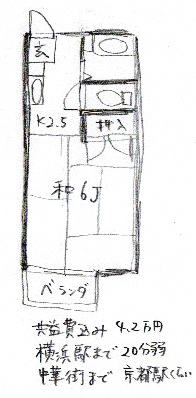 玄
K2.5
押入
和6J
ベランダ
共益費込み 4.2万円
横浜駅まで 20分弱
中華街まで 京都駅くらい